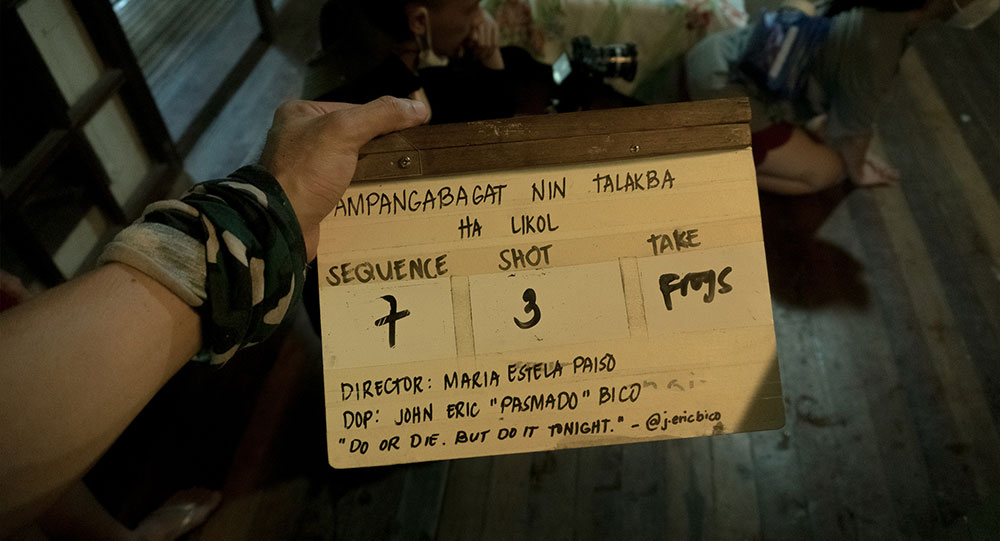 AMPANGABAGAT NIN TALAKBA
HA LIKOL
SEQUENCE SHOT TAKE
7 3 Frogs
DIRECTOR: MARIA ESTELA PAISO
DOP: JOHN ERIC "PASMADO" BICO
"DO OR DIE. BUT DO IT TONIGHT." - @j.ericbico